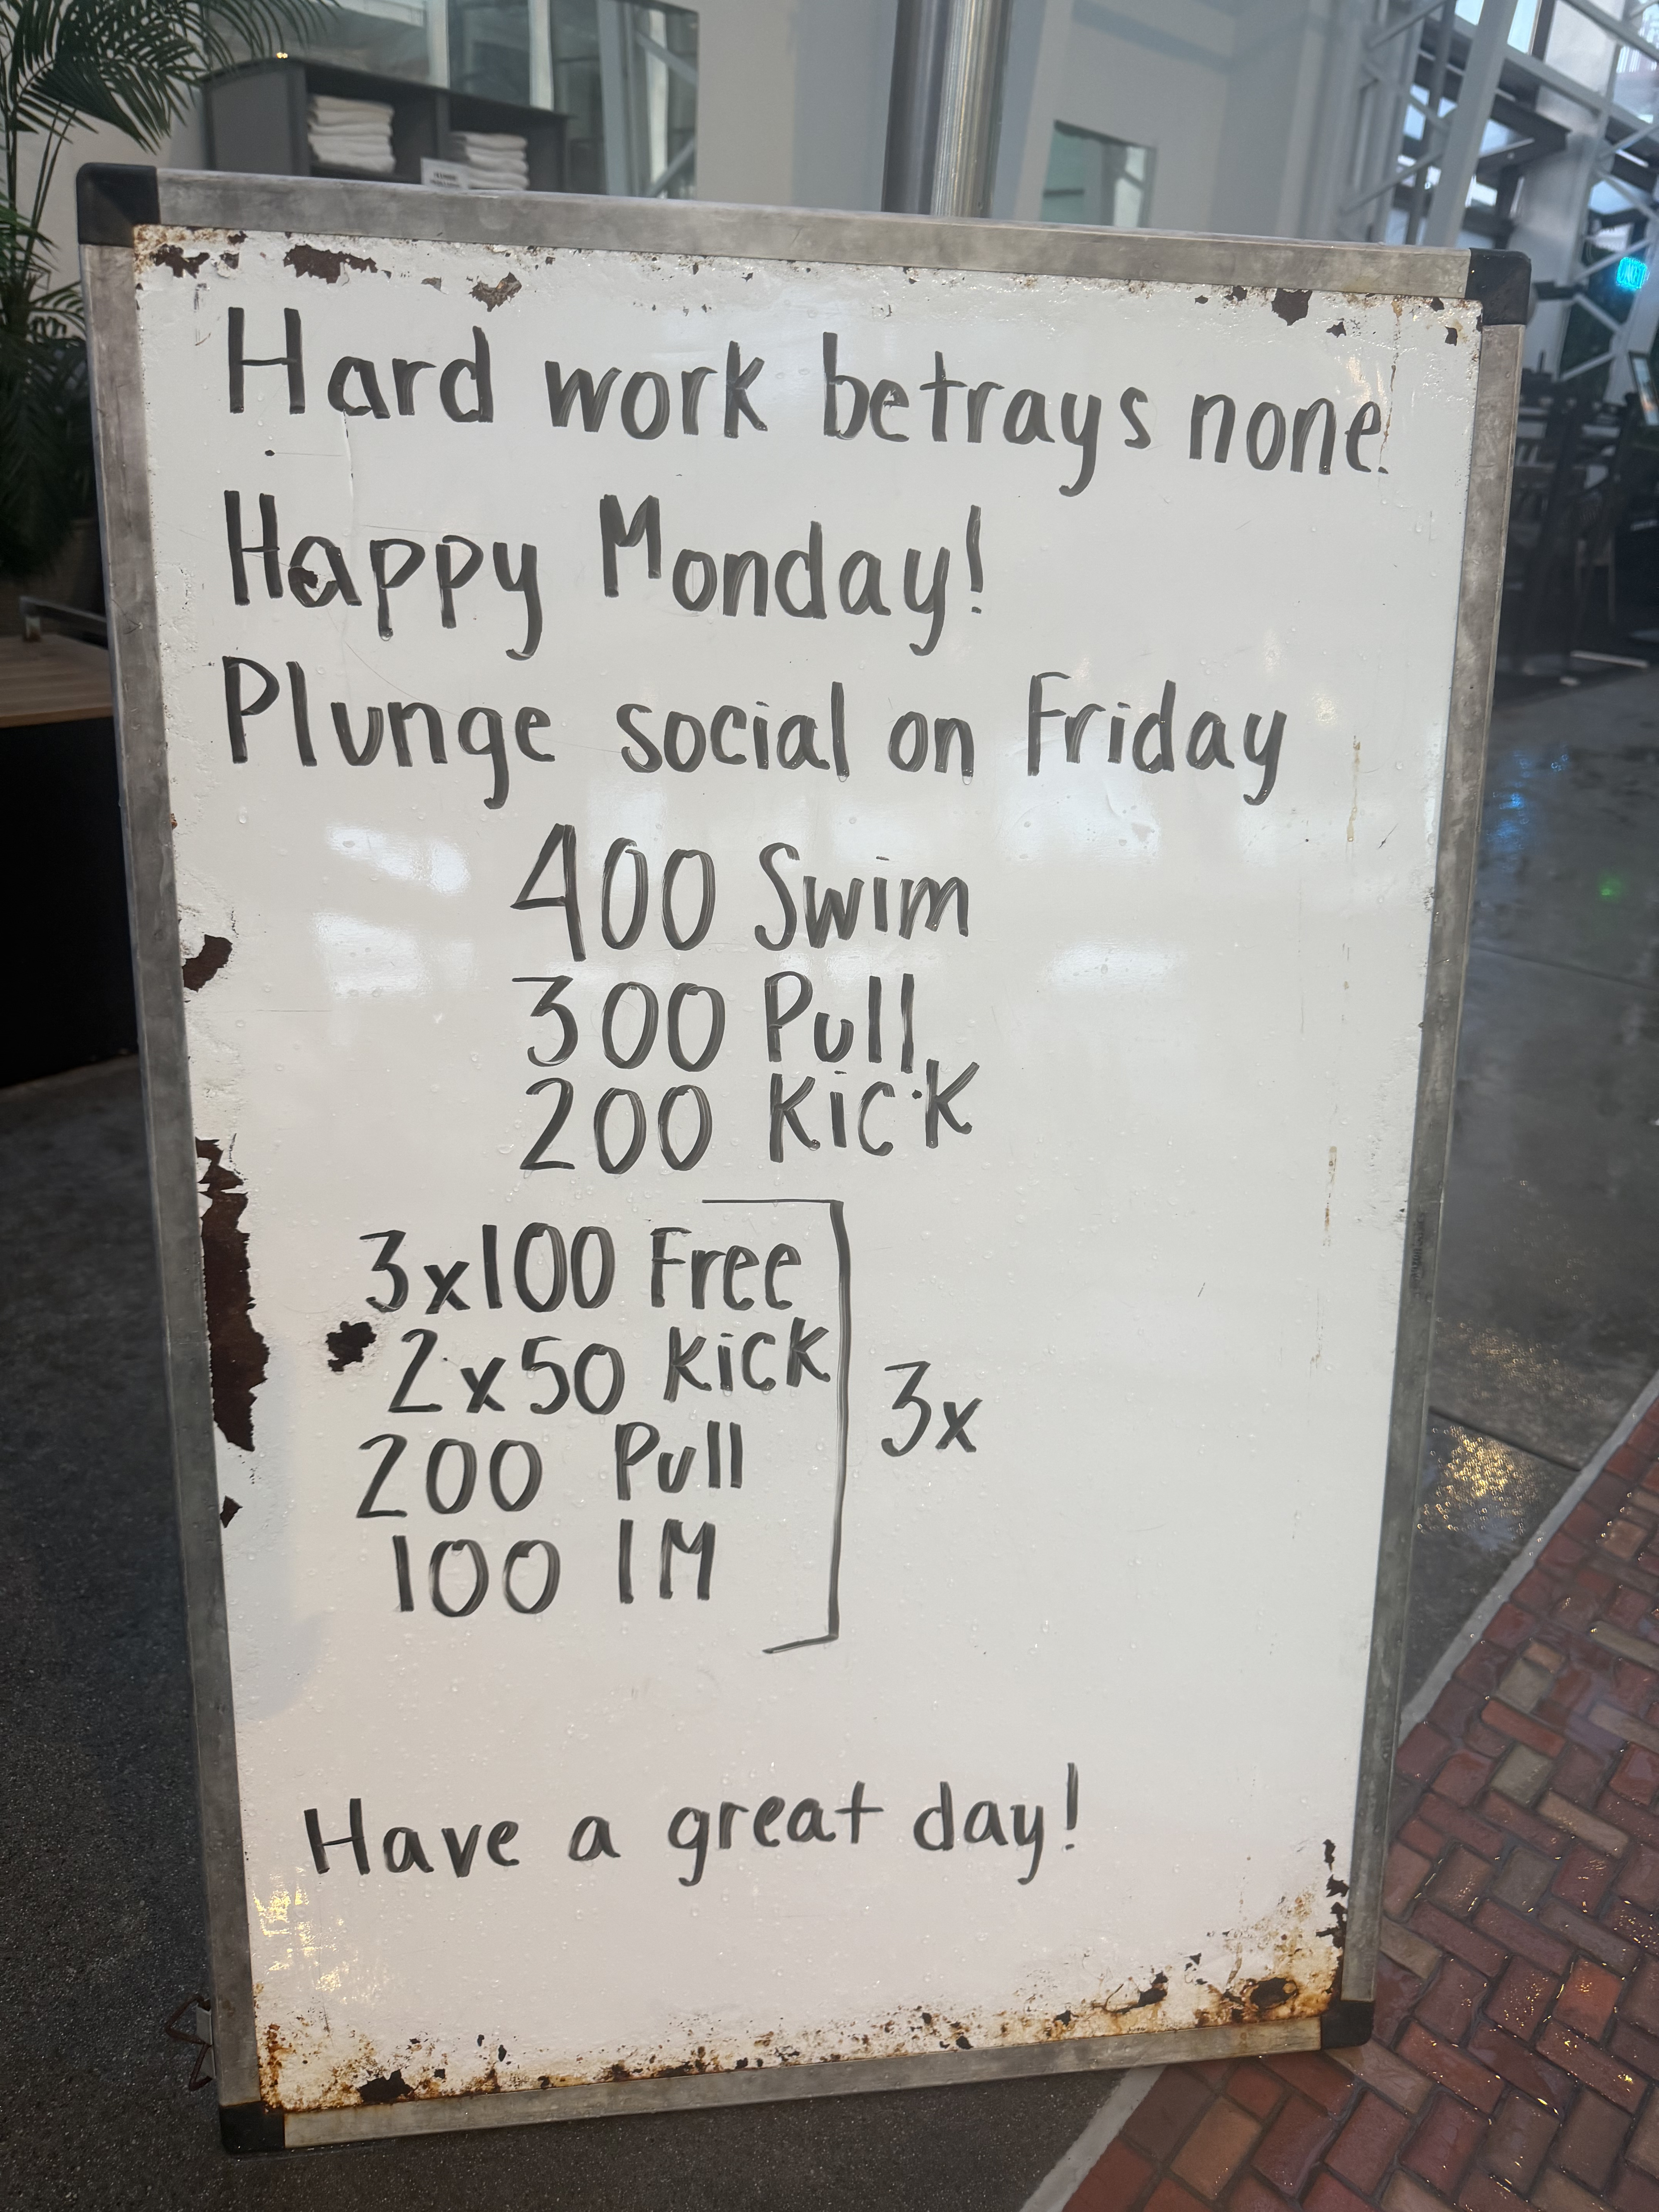 Hard work betrays none.
Happy Monday!
Plunge social on Friday
400 Swim
300 Pull
200 Kick
3x100 Free
2x50 Kick
200 Pull
100 IM
3x
Have a great day!